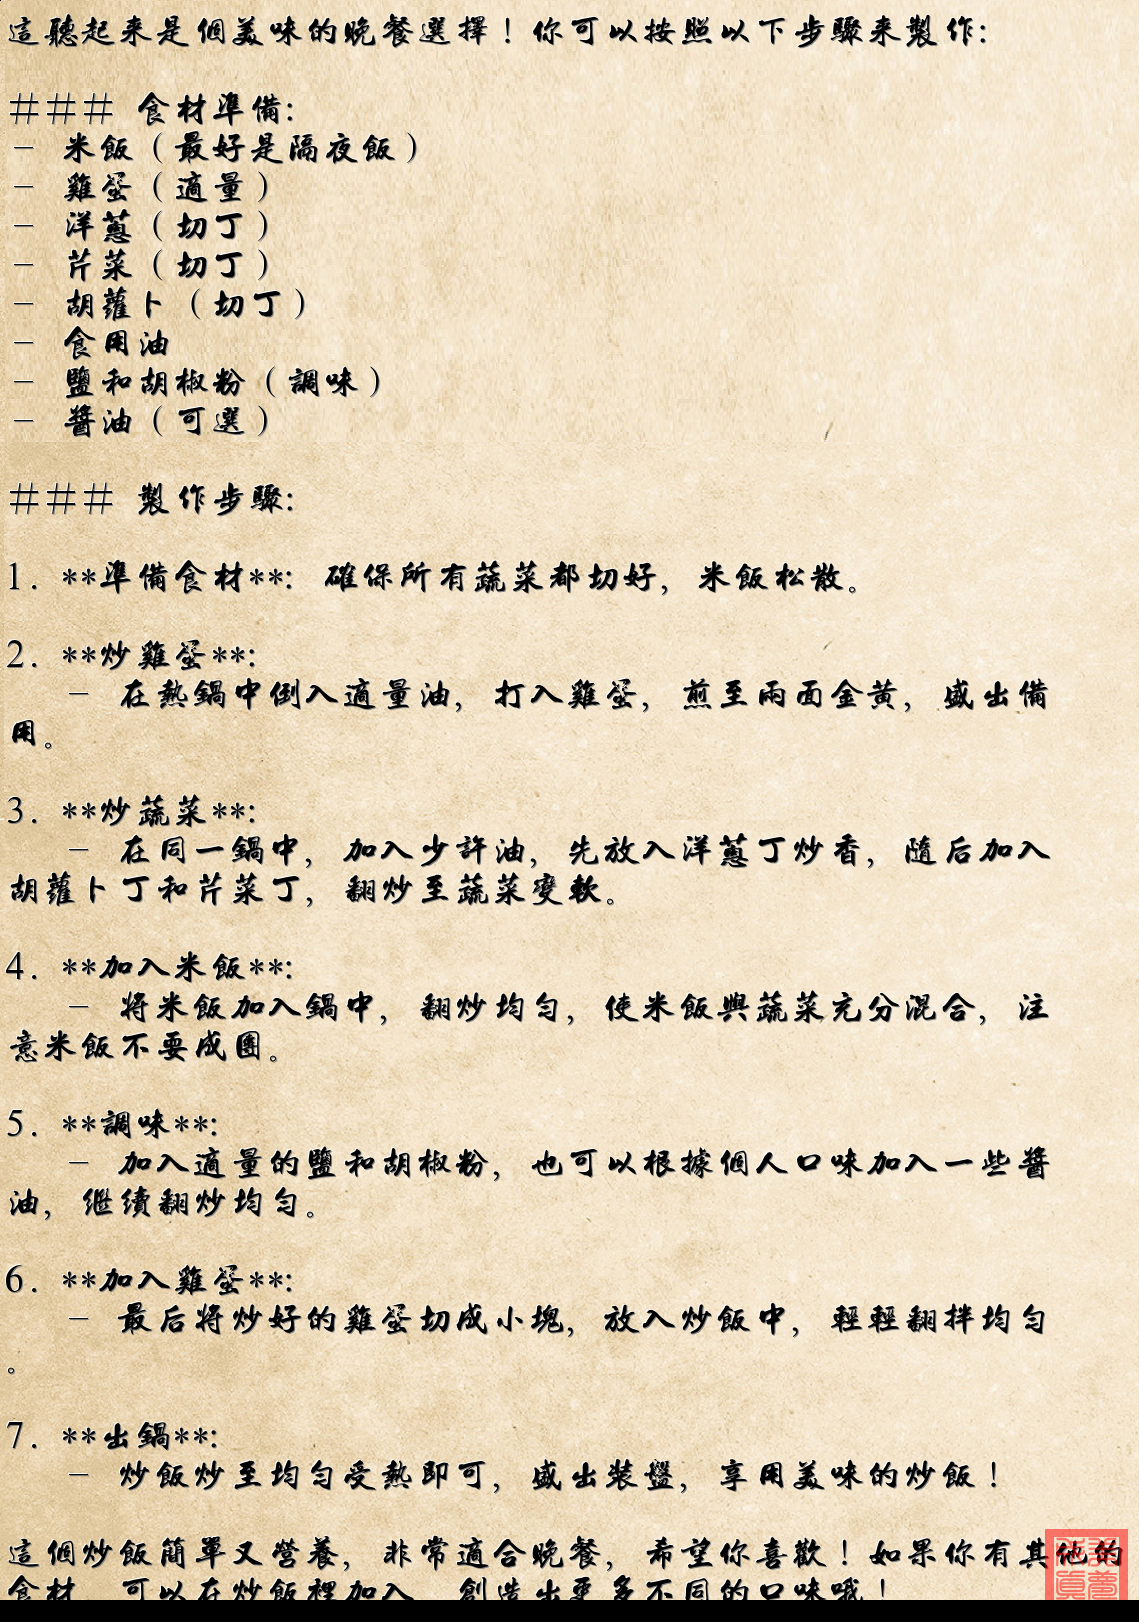 這聽起来是個美味的晚餐選擇！你可以按照以下步驟来製作：
### 食材準備：
- 米飯（最好是隔夜飯）
- 雞蛋（適量）
- 洋蔥（切丁）
- 芹菜（切丁）
- 胡蘿卜（切丁）
- 食用油
- 鹽和胡椒粉（調味）
- 醬油（可選）
### 製作步驟：
1. **準備食材**： 確保所有蔬菜都切好，米飯松散。
2. **炒雞蛋**：
- 在熱鍋中倒入適量油，打入雞蛋，煎至兩面金黄，盛出備
用。
3. **炒蔬菜**：
- 在同一鍋中，加入少許油，先放入洋蔥丁炒香，隨后加入
胡蘿卜丁和芹菜丁，翻炒至蔬菜變軟。
4. **加入米飯**：
- 將米飯加入鍋中，翻炒均勻，使米飯與蔬菜充分混合，注
意米飯不要成團。
5. **調味**：
- 加入適量的鹽和胡椒粉，也可以根據個人口味加入一些醬
油，继續翻炒均勻。
6. **加入雞蛋**：
- 最后將炒好的雞蛋切成小塊，放入炒飯中，輕輕翻拌均勻
。
7. **出鍋**：
- 炒飯炒至均勻受熱即可，盛出裝盤，享用美味的炒飯！
這個炒飯簡單又營養，非常適合晚餐，希望你喜歡！如果你有其他的
食材，可以在炒飯裡加入，創造出更多不同的口味哦！